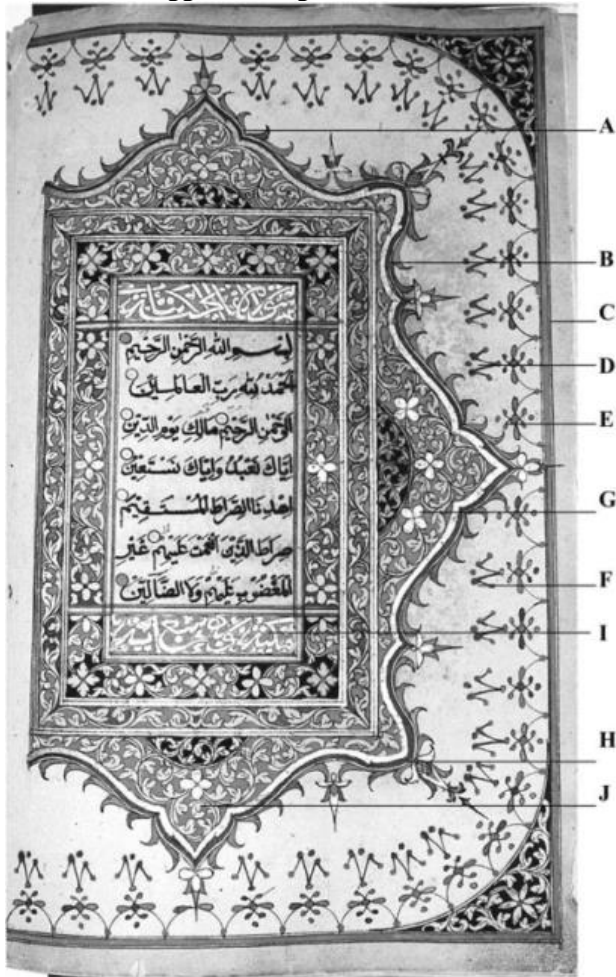 سورة
بِسْمِ اللهِ الرَّحْمٰنِ الرَّحِيْمِ
اَلْحَمْدُ لِلّٰهِ رَبِّ الْعَالَمِيْنَ
الرَّحْمٰنِ الرَّحِيْمِ مَالِكِ يَوْمِ الدِّيْنِ
اِيَّاكَ نَعْبُدُ وَاِيَّاكَ نَسْتَعِيْنُ
اِهْدِنَا الصِّرَاطَ الْمُسْتَقِيْمَ
صِرَاطَ الَّذِيْنَ اَنْعَمْتَ عَلَيْهِمْ غَيْرِ
الْمَغْضُوْبِ عَلَيْهِمْ وَلَا الضَّالِّيْنَ
A
B
C
D
E
G
F
I
H
J